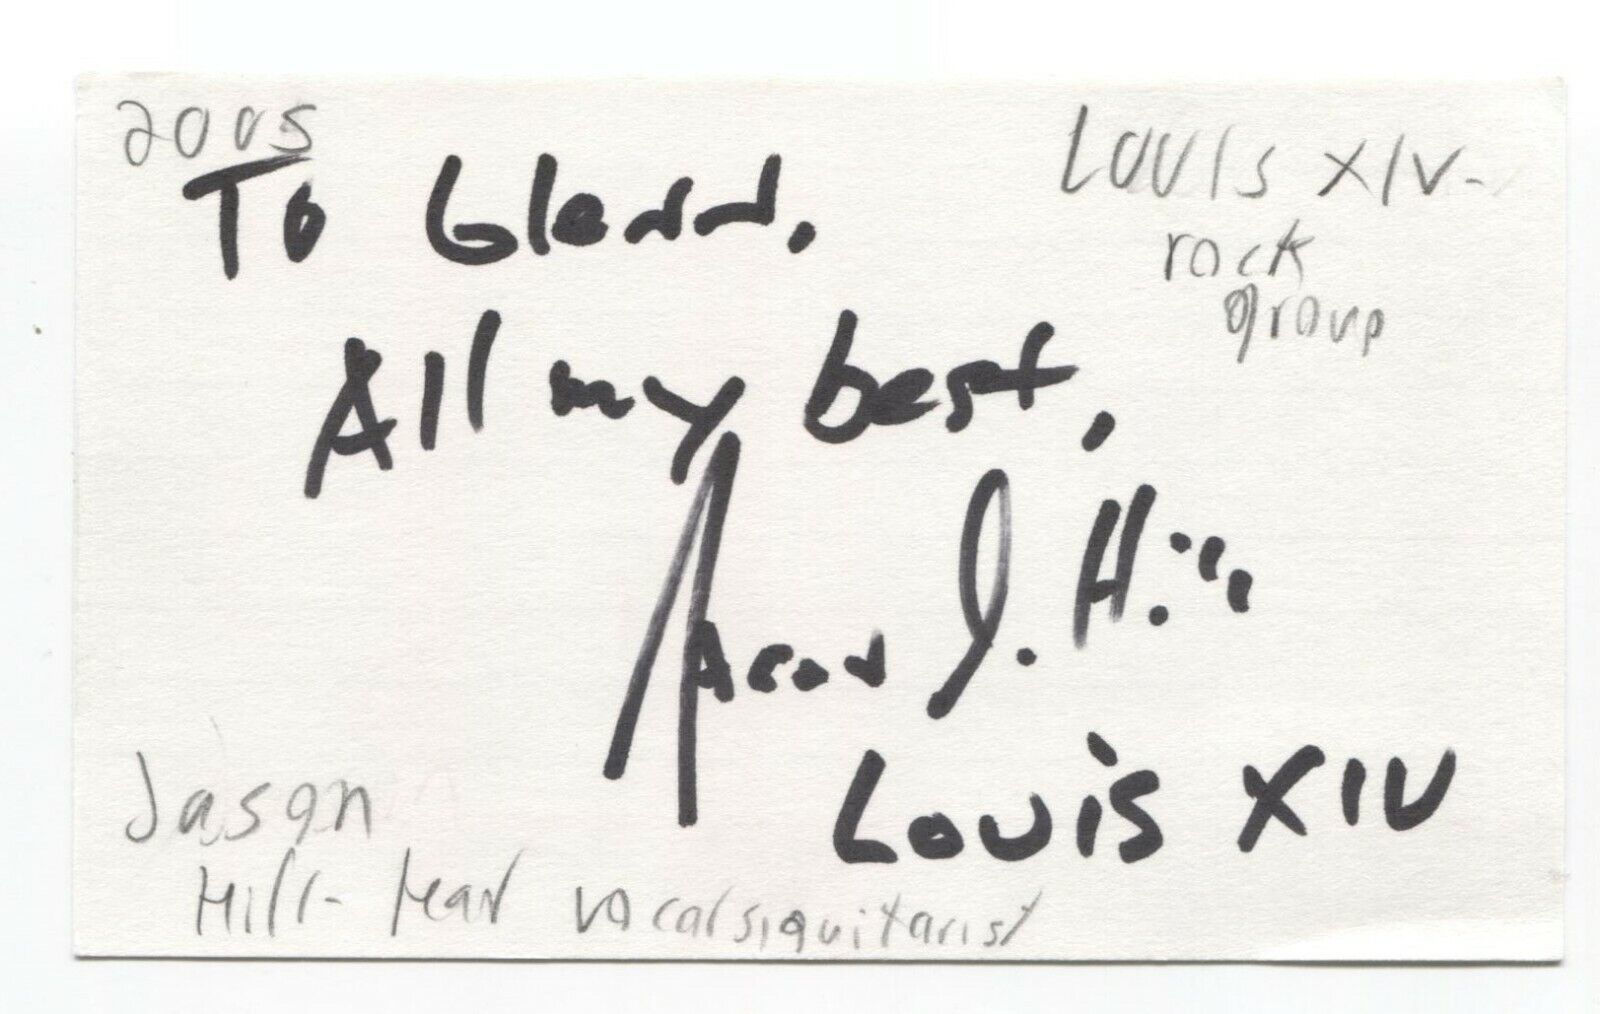 2005
Louis XIV-
rock
group
To Glenn,
All my best,
Jason J. Hill
Louis XIV
Jason
Hill- lead vocals, guitarist